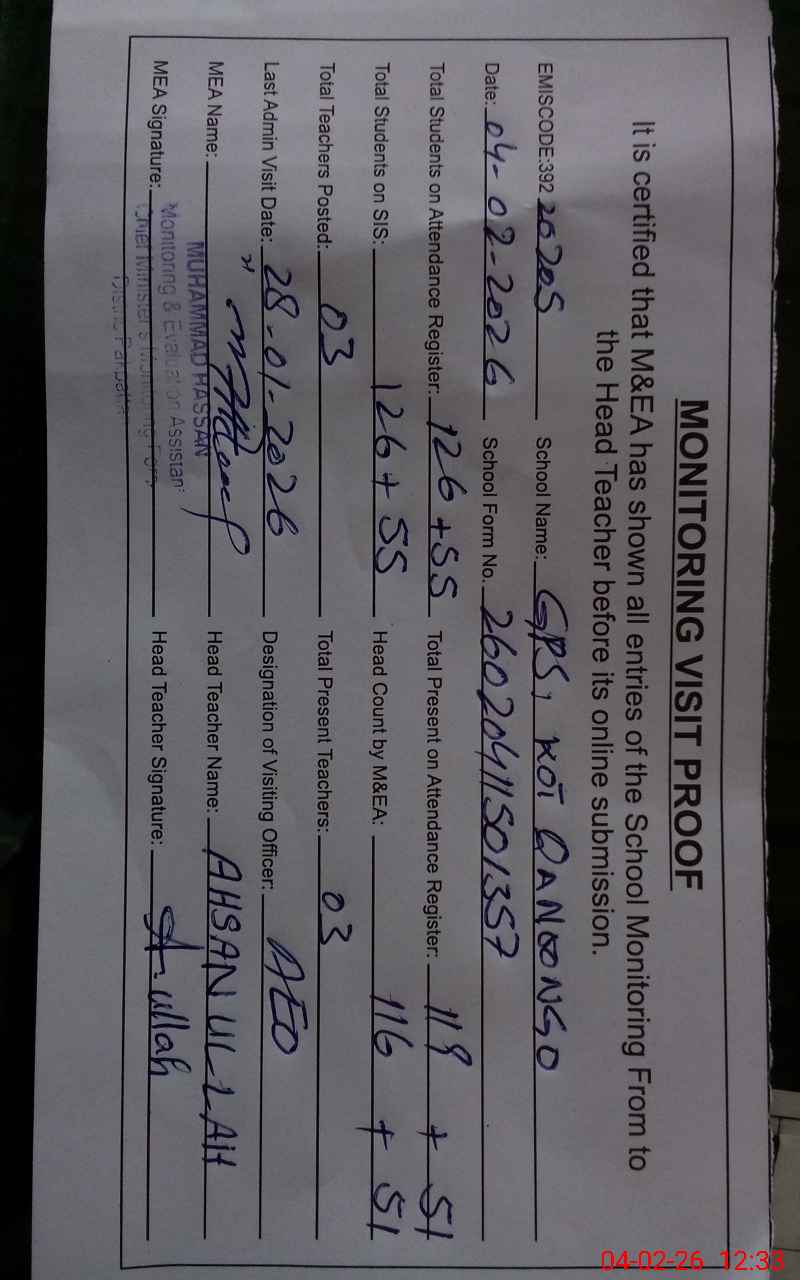 MONITORING VISIT PROOF
It is certified that M&EA has shown all entries of the School Monitoring From to
the Head Teacher before its online submission.
EMISCODE:392 20205 School Name: GPS, KOT QANOONGO
Date: 04-02-2026 School Form No. 26020411501357
Total Students on Attendance Register: 126 + 55 Total Present on Attendance Register: 119 + 51
Total Students on SIS: 126 + 55 Head Count by M&EA: 116 + 51
Total Teachers Posted: 03 Total Present Teachers: 03
Last Admin Visit Date: 28-01-2026 Designation of Visiting Officer: AEO
MEA Name: Head Teacher Name: AHSAN ULLAH
MUHAMMAD HASSAN
MEA Signature: Head Teacher Signature: A-ullah
Monitoring & Evaluation Assistant
Chief Minister's Monitoring Force
04-02-26 12:33